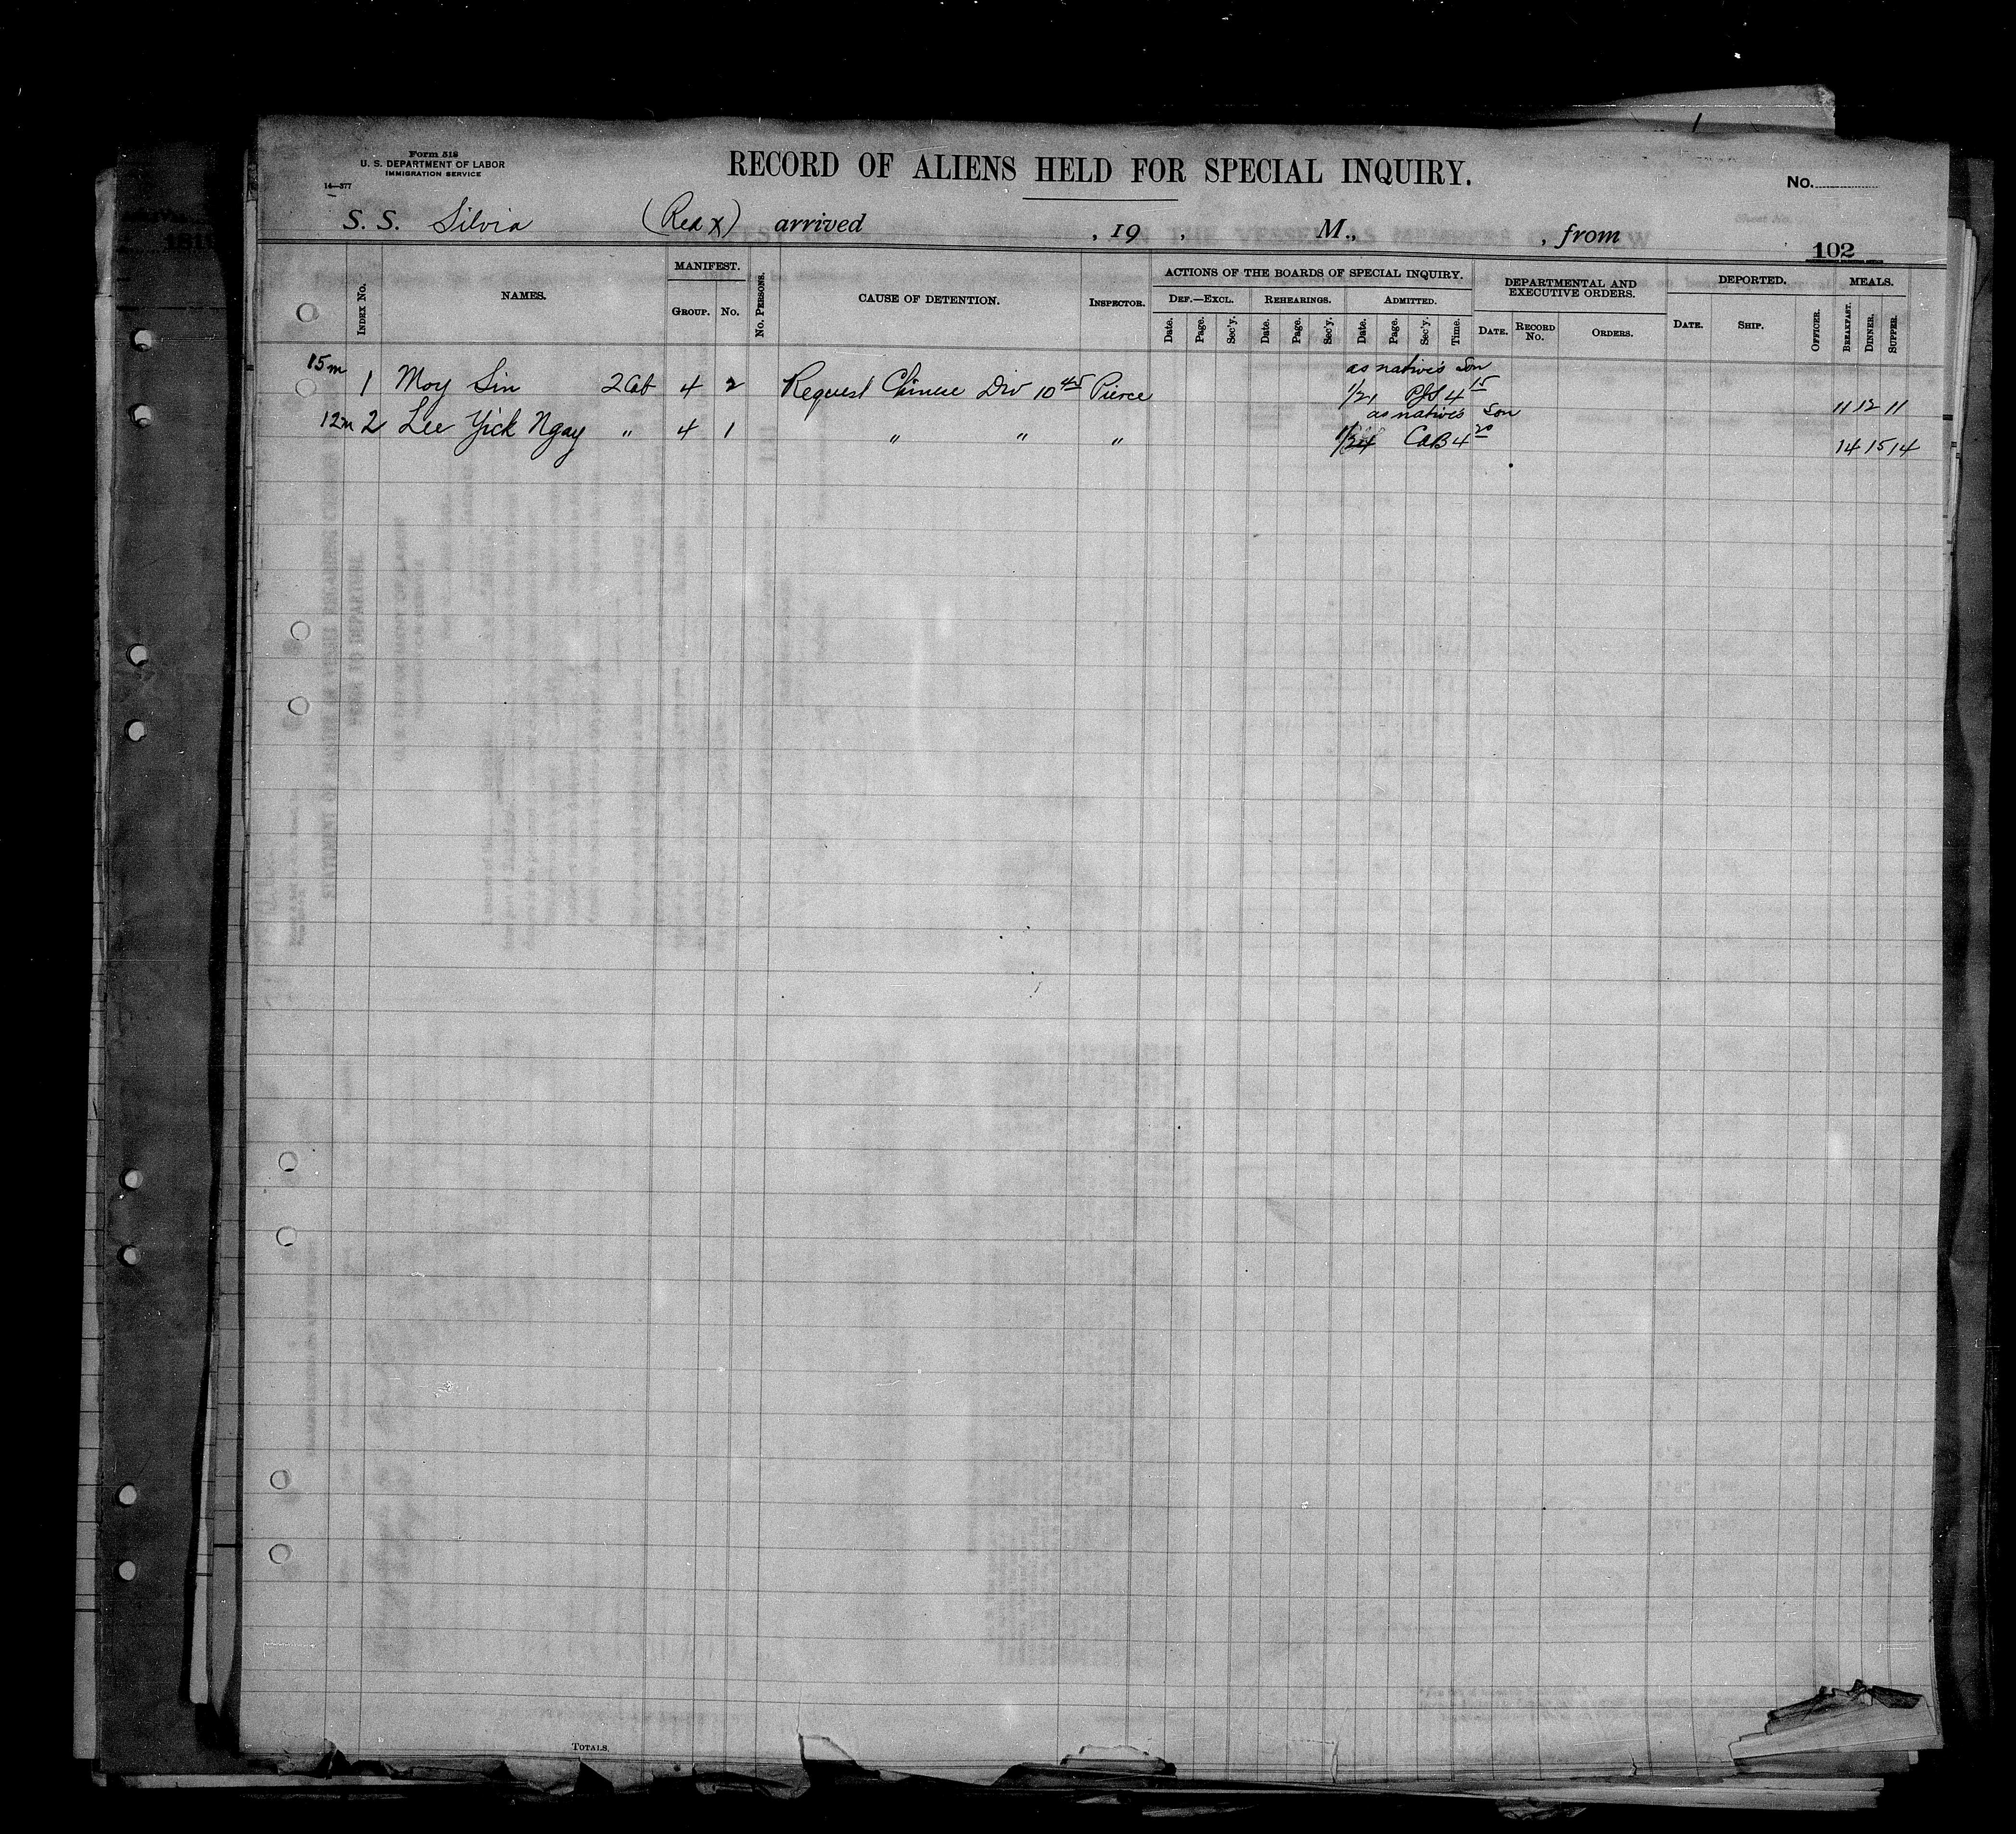 Form 518
U. S. DEPARTMENT OF LABOR
IMMIGRATION SERVICE
14—577
RECORD OF ALIENS HELD FOR SPECIAL INQUIRY.
No.
S. S. Silvia (Red X) arrived , 19 , M., , from
102
INDEX No.
NAMES.
MANIFEST.
GROUP. No.
No. PERSONS.
CAUSE OF DETENTION.
INSPECTOR.
ACTIONS OF THE BOARDS OF SPECIAL INQUIRY.
DEF.—EXCL. REHEARINGS. ADMITTED.
Date. Page. Sec'y. Date. Page. Sec'y. Date. Page. Sec'y. Time.
DEPARTMENTAL AND EXECUTIVE ORDERS.
DATE. RECORD No. ORDERS.
DEPORTED.
DATE. SHIP. OFFICER.
MEALS.
BREAKFAST. DINNER. SUPPER.
as native's Son
15m 1 Moy Sin 2 Cab 4 2 Request Chinese Div 10 45 Pierce 1/21 4 15 11 12 11
as native's Son
12m 2 Lee Yick Ngay " 4 1 " " " 1/24 CAB 4 20 14 15 14
TOTALS.